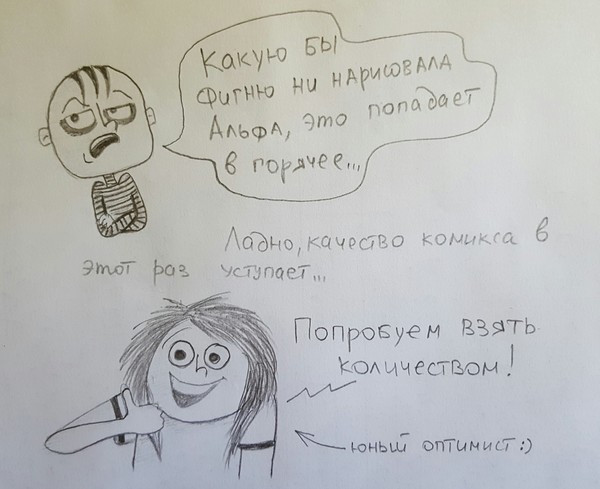 Какую бы
фигню ни нарисовала
Альфа, это попадает
в горячее...
Ладно, качество комикса в
этот раз уступает...
Попробуем взять
количеством!
юный оптимист:)